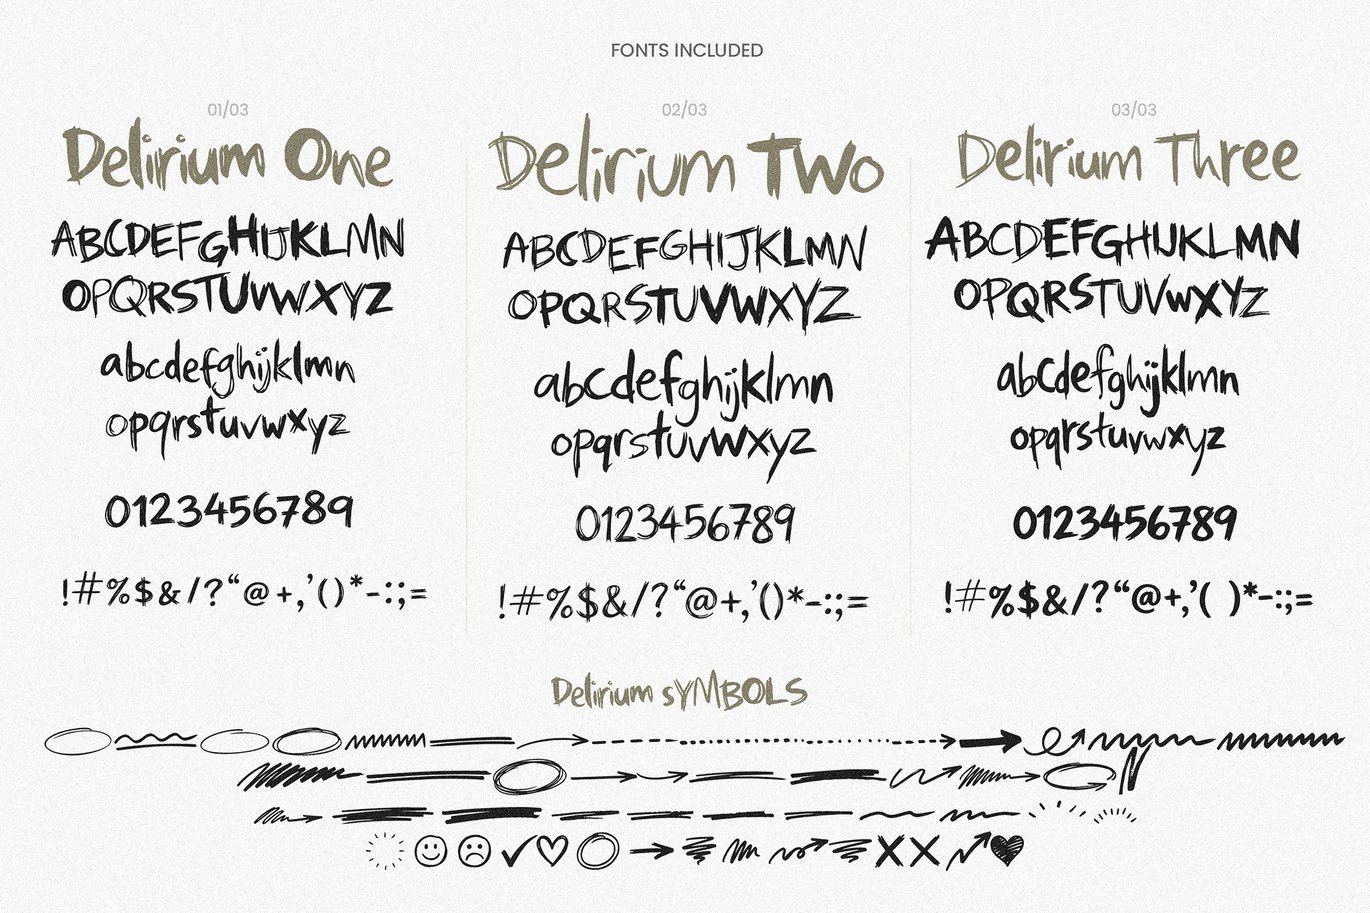 FONTS INCLUDED
01/03
Delirium One
ABCDEFGHIJKLMN
OPQRSTUVWXYZ
abcdefghijklmn
opqrstuvwxyz
0123456789
!#%$&/?“@+,’()*-:;=
02/03
Delirium Two
ABCDEFGHIJKLMN
OPQRSTUVWXYZ
abcdefghijklmn
opqrstuvwxyz
0123456789
!#%$&/?“@+,’()*-:;=
03/03
Delirium Three
ABCDEFGHIJKLMN
OPQRSTUVWXYZ
abcdefghijklmn
opqrstuvwxyz
0123456789
!#%$&/?“@+,’( )*-:;=
Delirium sYMBOLS